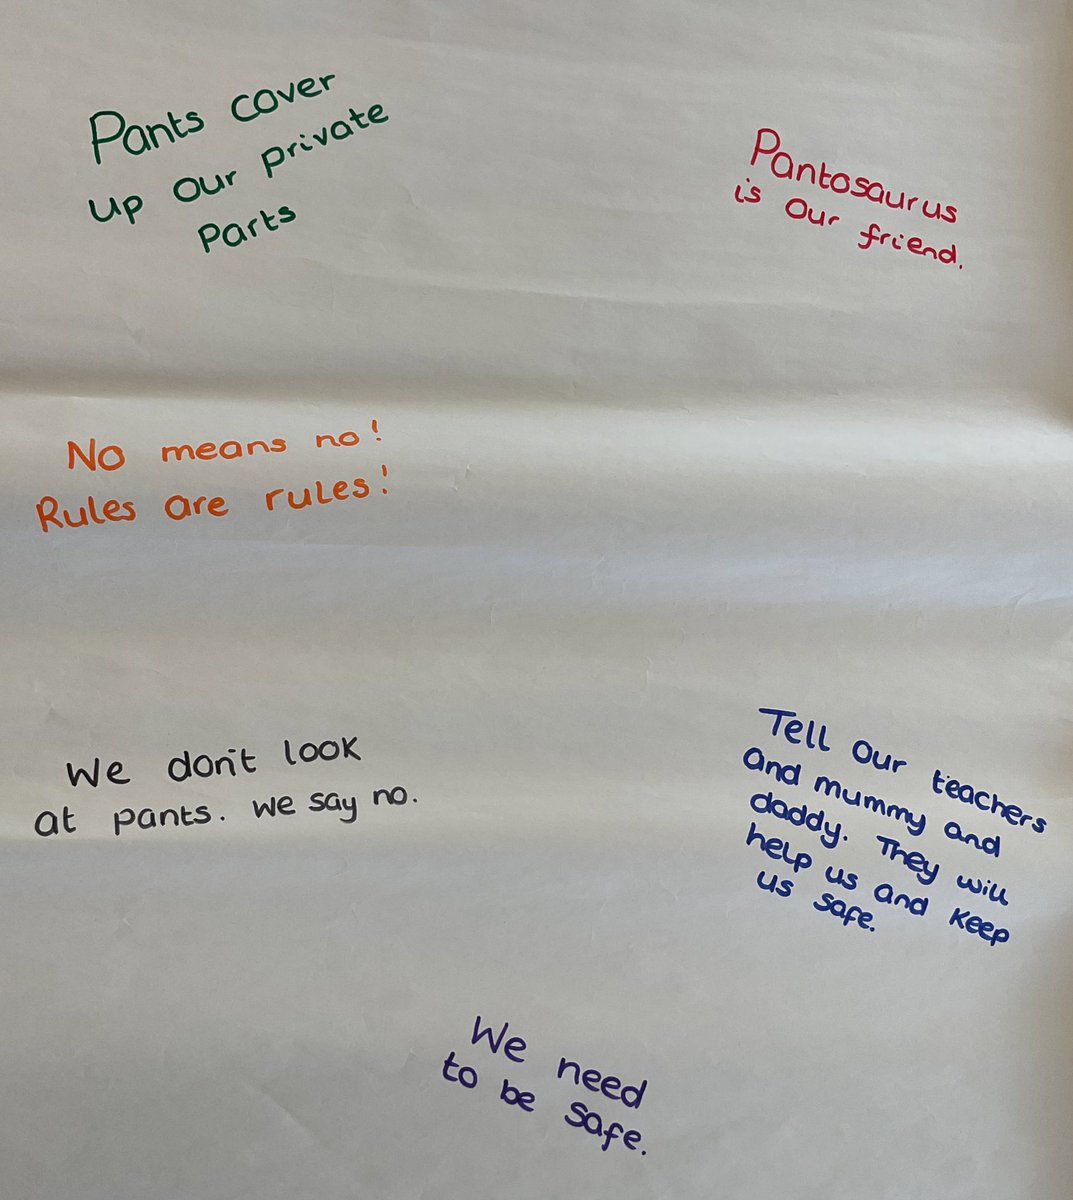 Pants cover
up our private
parts
Pantosaurus
is our friend.
No means no!
Rules are rules!
We don't look
at pants. we say no.
Tell our teachers
and mummy and
daddy. They will
help us and keep
us safe.
We need
to be safe.